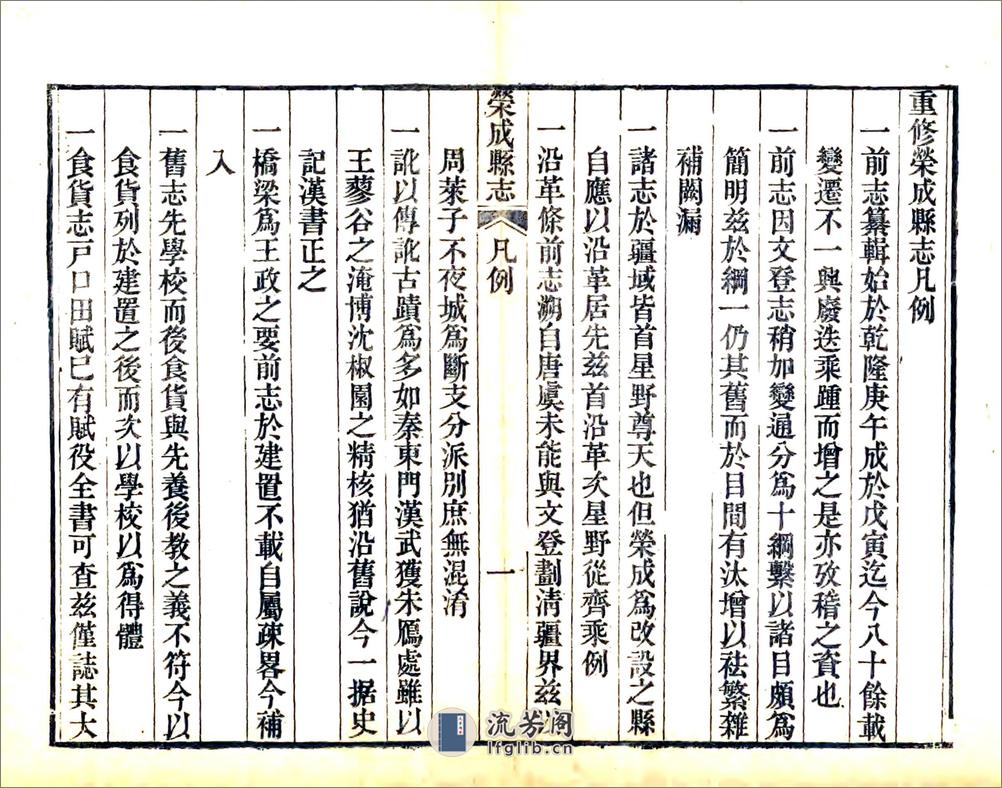 重修榮成縣志凡例
一前志纂輯始於乾隆庚午成於戊寅迄今八十餘載
變遷不一興廢迭乘踵而增之是亦攷稽之資也
一前志因文登志稍加變通分爲十綱繫以諸目頗爲
簡明茲於綱一仍其舊而於目間有汰增以祛繁雜
補闕漏
一諸志於疆域皆首星野尊天也但榮成爲改設之縣
自應以沿革居先茲首沿革次星野從齊乘例
一沿革條前志溯自唐虞未能與文登劃清疆界茲
榮成縣志
凡例
一
周萊子不夜城爲斷支分派別庶無混淆
一訛以傳訛古蹟爲多如秦東門漢武獲朱鴈處雖以
王蓼谷之淹博沈椒園之精核猶沿舊說今一据史
記漢書正之
一橋梁爲王政之要前志於建置不載自屬疎畧今補
入
一舊志先學校而後食貨與先養後教之義不符今以
食貨列於建置之後而次以學校以爲得體
一食貨志戸口田賦已有賦役全書可查茲僅誌其大
流芳阁
lfglib.cn